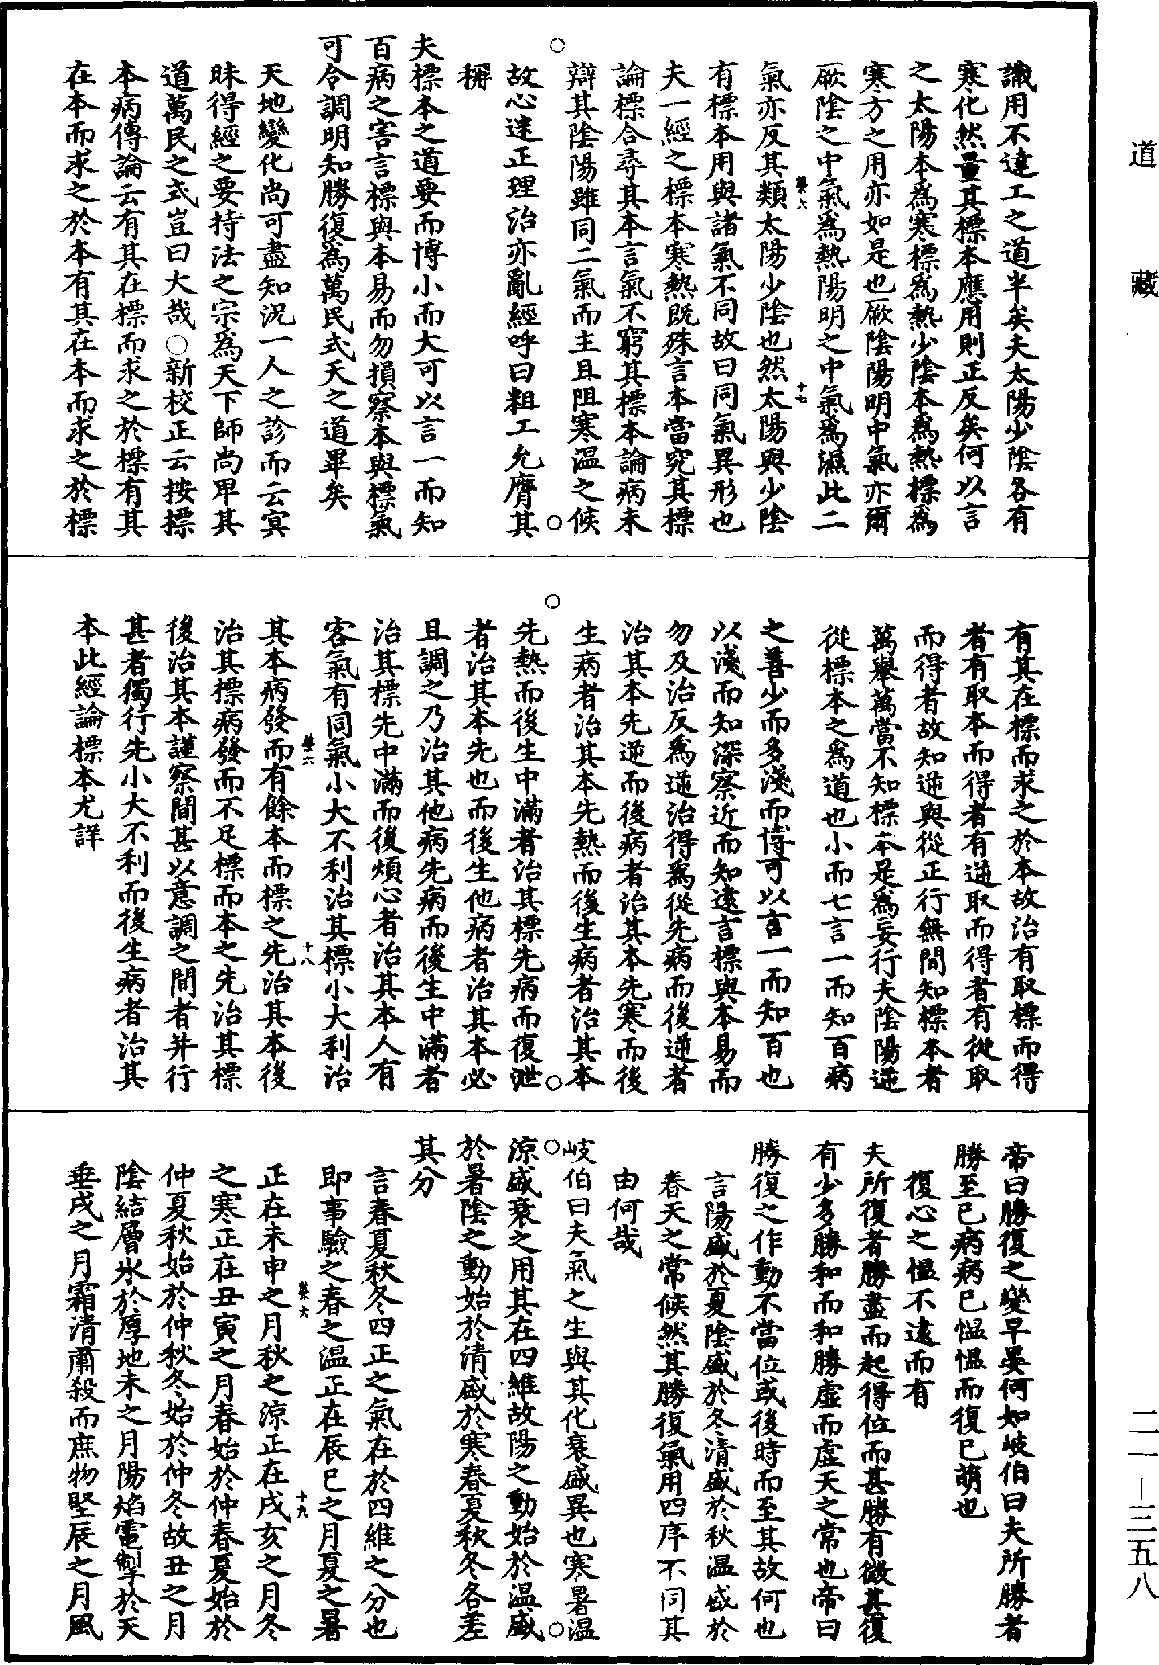 道藏
識用不達工之道半矣夫太陽少陰各有
寒化然量其標本應用則正反矣何以言
之太陽本爲寒標爲熱少陰本爲熱標爲
寒方之用亦如是也厥陰陽明中氣亦爾
厥陰之中氣爲熱陽明之中氣爲濕此二
氣亦反其類太陽少陰也然太陽與少陰
有標本用與諸氣不同故曰同氣異形也
夫一經之標本寒熱既殊言本當究其標
論標合尋其本言氣不窮其標本論病未
辯其陰陽雖同二氣而主且阻寒溫之候
故心迷正理治亦亂經呼曰粗工允膺其
稱
夫標本之道要而博小而大可以言一而知
百病之害言標與本易而勿損察本與標氣
可令調明知勝復爲萬民式天之道畢矣
天地變化尚可盡知況一人之診而云冥
昧得經之要持法之宗爲天下師尚卑其
道萬民之式豈曰大哉○新校正云按標
本病傳論云有其在標而求之於標有其
在本而求之於本有其在本而求之於標
有其在標而求之於本故治有取標而得
者有取本而得者有逆取而得者有從取
而得者故知逆與從正行無間知標本者
萬舉萬當不知標本是爲妄行夫陰陽逆
從標本之爲道也小而七言一而知百病
之害少而多淺而博可以言一而知百也
以淺而知深察近而知遠言標與本易而
勿及治反爲逆治得爲從先病而後逆者
治其本先逆而後病者治其本先寒而後
生病者治其本先熱而後生病者治其本
先熱而後生中滿者治其標先病而復泄
者治其本先也而後生他病者治其本必
且調之乃治其他病先病而後生中滿者
治其標先中滿而後煩心者治其本人有
客氣有同氣小大不利治其標小大利治
其本病發而有餘本而標之先治其本後
治其標病發而不足標而本之先治其標
後治其本謹察間甚以意調之間者并行
甚者獨行先小大不利而後生病者治其
本此經論標本尤詳
帝曰勝復之變早晏何如岐伯曰夫所勝者
勝至已病病已慍慍而復已萌也
復心之慍不遠而有
夫所復者勝盡而起得位而甚勝有微甚復
有少多勝和而和勝虛而虛天之常也帝曰
勝復之作動不當位或後時而至其故何也
言陽盛於夏陰盛於冬清盛於秋溫盛於
春天之常候然其勝復氣用四序不同其
由何哉
岐伯曰夫氣之生與其化衰盛異也寒暑溫
涼盛衰之用其在四維故陽之動始於溫盛
於暑陰之動始於清盛於寒春夏秋冬各差
其分
言春夏秋冬四正之氣在於四維之分也
即事驗之春之溫正在辰巳之月夏之暑
正在未申之月秋之涼正在戌亥之月冬
之寒正在丑寅之月春始於仲春夏始於
仲夏秋始於仲秋冬始於仲冬故丑之月
陰結層氷於厚地未之月陽焰電掣於天
垂戌之月霜清肅殺而庶物堅辰之月風
二一—三五八